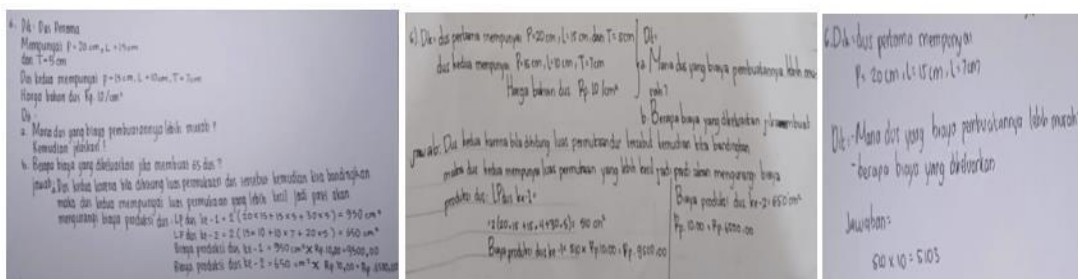 6. Dik: Dus Pertama
Mempunyai P = 20 cm, L = 15 cm
dan T = 5 cm
Dus kedua mempunyai p = 15 cm, L = 10 cm, T = 7 cm
Harga bahan dus Rp. 10 / cm²
Dit :
a. Mana dus yang biaya pembuatannya lebih murah ?
Kemudian jelaskan !
b. Berapa biaya yang dikeluarkan jika membuat 25 dus ?
jawab: Dus kedua karena bila dihitung luas permukaan dus tersebut kemudian kita bandingkan
maka dus kedua mempunyai luas permukaan yang lebih kecil jadi pasti akan
mengurangi biaya produksi dus
: LP dus ke-1 = 2
= 950 cm²
LP dus ke-2 = 2
= 650 cm²
Biaya produksi dus ke-1 = 950 cm² x Rp 10,00 = 9500,00
Biaya produksi dus ke-2 = 650 cm² x Rp 10,00 = Rp.
6). Dik: dus pertama mempunyai P=20 cm, L=15 cm, dan T=5cm
dus kedua mempunyai P=15 cm, L=10 cm, T=7cm
Harga bahan dus Rp.10/cm²
Dit:
a. Mana dus yang biaya pembuatannya lebih mu
rah?
b. Berapa biaya yang dikeluarkan jika membuat
jawab: Dus kedua karena bila dihitung luas permukaan dus tersebut kemudian kita bandingkan
maka dus kedua mempunyai luas permukaan yang lebih kecil jadi pasti akan mengurangi biaya
produksi dus: LP dus ke-1=
Biaya produksi dus ke-1=
Biaya produksi dus ke-2=650 cm²
6. Dik: dus pertama mempunyai
P= 20 cm, L= 15 cm, L= 7cm
Dit: - Mana dus yang biaya pembuatannya lebih murah
- berapa biaya yang dikeluarkan
Jawaban:
510 x 10 = 5103